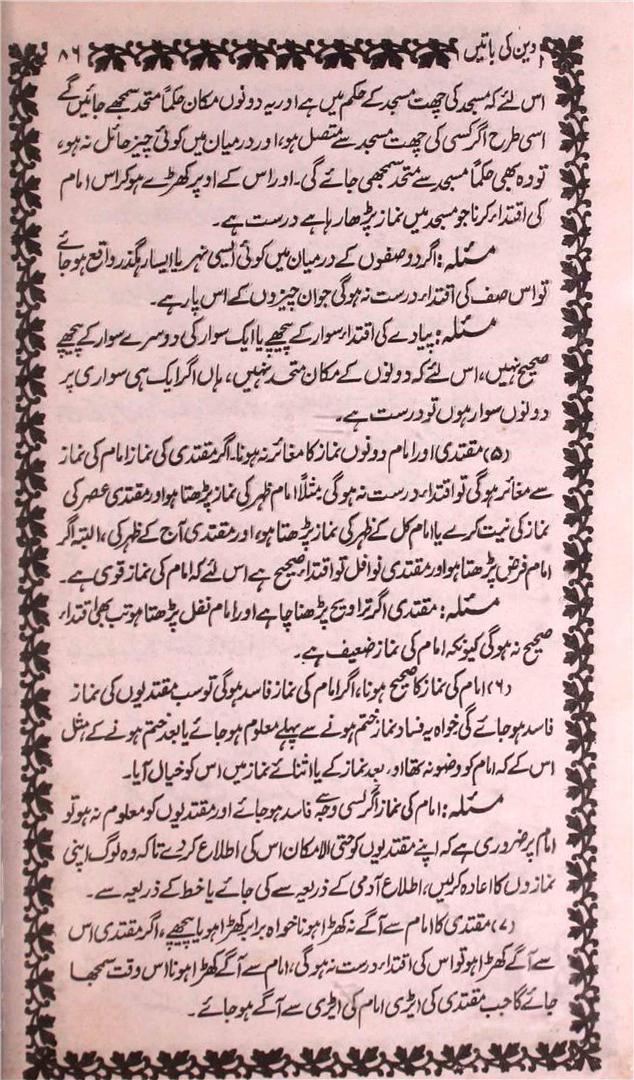 دین کی باتیں ۸۶
اس لئے کہ مسجد کی چھت مسجد کے حکم میں ہے اور یہ دونوں مکان حکماً متحد سمجھے جائیں گے
اسی طرح اگر کسی کی چھت مسجد سے متصل ہو، اور درمیان میں کوئی چیز حائل نہ ہو،
تو وہ بھی حکماً مسجد سے متحد سمجھی جائے گی۔ اور اس کے اوپر کھڑے ہو کر اس امام
کی اقتدار کرنا جو مسجد میں نماز پڑھا رہا ہے درست ہے۔
مسئلہ: اگر دو صفوں کے درمیان میں کوئی ایسی نہر یا ایسا رہگذر واقع ہو جائے
تو اس صف کی اقتدار درست نہ ہوگی جو ان چیزوں کے اس پار ہے۔
مسئلہ: پیادے کی اقتدار سوار کے پیچھے یا ایک سوار کی دوسرے سوار کے پیچھے
صحیح نہیں، اس لئے کہ دونوں کے مکان متحد نہیں، ہاں اگر ایک ہی سواری پر
دونوں سوار ہوں تو درست ہے۔
(۵) مقتدی اور امام دونوں نماز کا مغائر نہ ہونا۔ اگر مقتدی کی نماز امام کی نماز
سے مغائر ہوگی تو اقتدار درست نہ ہوگی۔ مثلاً امام ظہر کی نماز پڑھتا ہو اور مقتدی عصر کی
نماز کی نیت کرے یا امام کل کے ظہر کی نماز پڑھتا ہو، اور مقتدی آج کے ظہر کی، البتہ اگر
امام فرض پڑھتا ہو اور مقتدی نوافل تو اقتدار صحیح ہے اس لئے کہ امام کی نماز قوی ہے۔
مسئلہ: مقتدی اگر تراویح پڑھنا چاہے اور امام نفل پڑھتا ہو تب بھی اقتدار
صحیح نہ ہوگی کیونکہ امام کی نماز ضعیف ہے۔
(۶) امام کی نماز کا صحیح ہونا، اگر امام کی نماز فاسد ہوگی تو سب مقتدیوں کی نماز
فاسد ہو جائے گی خواہ یہ فساد نماز ختم ہونے سے پہلے معلوم ہو جائے یا بعد ختم ہونے کے مثل
اس کے کہ امام کو وضو نہ تھا اور بعد نماز کے یا اثنائے نماز میں اس کو خیال آیا۔
مسئلہ: امام کی نماز اگر کسی وجہ سے فاسد ہو جائے اور مقتدیوں کو معلوم نہ ہو تو
امام پر ضروری ہے کہ اپنے مقتدیوں کو حتی الامکان اس کی اطلاع کر دے تاکہ وہ لوگ اپنی
نمازوں کا اعادہ کر لیں، اطلاع آدمی کے ذریعہ سے کی جائے یا خط کے ذریعہ سے۔
(۷) مقتدی کا امام سے آگے نہ کھڑا ہونا خواہ برابر کھڑا ہو یا پیچھے، اگر مقتدی اس
سے آگے کھڑا ہو تو اس کی اقتدار درست نہ ہوگی، امام سے آگے کھڑا ہونا اس وقت سمجھا
جائے گا جب مقتدی کی ایڑی امام کی ایڑی سے آگے ہو جائے۔